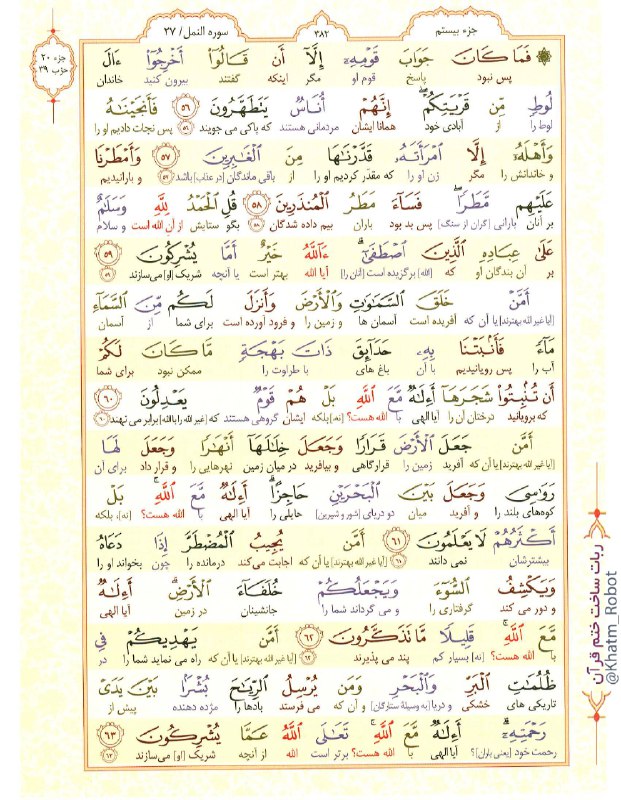 جزء بیستم
۳۸۲
سوره النمل/ ۲۷
جزء ۲۰
حزب ۳۹
فَمَا كَانَ جَوَابَ قَوْمِهِۦٓ إِلَّآ أَن قَالُوٓا۟ أَخْرِجُوٓا۟ ءَالَ
پس نبود پاسخ قوم او مگر اینکه گفتند بیرون کنید خاندان
لُوطٍ مِّن قَرْيَتِكُمْ إِنَّهُمْ أُنَاسٌ يَتَطَهَّرُونَ ٥٦ فَأَنجَيْنَـٰهُ
لوط را از آبادی خود همانا ایشان مردمانی هستند که پاکی می جویند ۵۶ پس نجات دادیم او را
وَأَهْلَهُۥٓ إِلَّا ٱمْرَأَتَهُۥ قَدَّرْنَـٰهَا مِنَ ٱلْغَـٰبِرِينَ ٥٧ وَأَمْطَرْنَا
و خاندانش را مگر زن او را که مقدّر کردیم او را از باقی ماندگان [در عذاب] باشد ۵۷ و بارانیدیم
عَلَيْهِم مَّطَرًا فَسَآءَ مَطَرُ ٱلْمُنذَرِينَ ٥٨ قُلِ ٱلْحَمْدُ لِلَّهِ وَسَلَـٰمٌ
بر آنان بارانی [گران از سنگ] پس بد بود باران بیم داده شدگان ۵۸ بگو ستایش از آن الله است و سلام
عَلَىٰ عِبَادِهِ ٱلَّذِينَ ٱصْطَفَىٰٓ ءَآللَّهُ خَيْرٌ أَمَّا يُشْرِكُونَ ٥٩
بر آن بندگان او که [الله] برگزیده است [آنان را] آیا الله بهتر است یا آنچه شریک [او] می‌سازند ۵۹
أَمَّنْ خَلَقَ ٱلسَّمَـٰوَٰتِ وَٱلْأَرْضَ وَأَنزَلَ لَكُم مِّنَ ٱلسَّمَآءِ
[آیا غیر الله بهترند] یا آن که آفریده است آسمان ها و زمین را و فرود آورده است برای شما از آسمان
مَآءً فَأَنۢبَتْنَا بِهِۦ حَدَآئِقَ ذَاتَ بَهْجَةٍ مَّا كَانَ لَكُمْ
آب را پس رویانیدیم با آن باغ های با طراوت را ممکن نبود برای شما
أَن تُنۢبِتُوا۟ شَجَرَهَآ أَءِلَـٰهٌ مَّعَ ٱللَّهِ بَلْ هُمْ قَوْمٌ يَعْدِلُونَ ٦٠
که برویانید درختان آن را آیا الهی با الله هست؟ [نه] بلکه ایشان گروهی هستند که [غیر الله را با الله] برابر می نهند ۶۰
أَمَّن جَعَلَ ٱلْأَرْضَ قَرَارًا وَجَعَلَ خِلَـٰلَهَآ أَنْهَـٰرًا وَجَعَلَ لَهَا
[آیا غیر الله بهترند] یا آن که آفرید زمین را قرارگاهی و بیافرید در میان زمین نهرهایی را و قرار داد برای آن
رَوَٰسِىَ وَجَعَلَ بَيْنَ ٱلْبَحْرَيْنِ حَاجِزًا أَءِلَـٰهٌ مَّعَ ٱللَّهِ بَلْ
کوه‌های بلند را و آفرید میان دو دریای [شور و شیرین] حایلی را آیا الهی با الله هست؟ [نه]، بلکه
أَكْثَرُهُمْ لَا يَعْلَمُونَ ٦١ أَمَّن يُجِيبُ ٱلْمُضْطَرَّ إِذَا دَعَاهُ
بیشترشان نمی دانند ۶۱ [آیا غیر الله بهترند] یا آن که اجابت می‌کند درمانده را چون بخواند او را
وَيَكْشِفُ ٱلسُّوٓءَ وَيَجْعَلُكُمْ خُلَفَآءَ ٱلْأَرْضِ أَءِلَـٰهٌ
و دور می کند گرفتاری را و می گرداند شما را جانشینان در زمین آیا الهی
مَّعَ ٱللَّهِ قَلِيلًا مَّا تَذَكَّرُونَ ٦٢ أَمَّن يَهْدِيكُمْ فِى
با الله هست؟ [نه] بسیار کم پند می پذیرند ۶۲ [آیا غیر الله بهترند] یا آن که راه می نماید شما را در
ظُلُمَـٰتِ ٱلْبَرِّ وَٱلْبَحْرِ وَمَن يُرْسِلُ ٱلرِّيَـٰحَ بُشْرًۢا بَيْنَ يَدَىْ
تاریکی های خشکی و دریا [به وسیلۀ ستارگان] و آن که می فرستد بادها را مژده دهنده پیش از
رَحْمَتِهِۦٓ أَءِلَـٰهٌ مَّعَ ٱللَّهِ تَعَـٰلَى ٱللَّهُ عَمَّا يُشْرِكُونَ ٦٣
رحمت خود [یعنی باران]؟ آیا الهی با الله هست؟ برتر است الله از آنچه شریک [او] می‌سازند ۶۳
ربات ساخت ختم قرآن
@Khatm_Robot